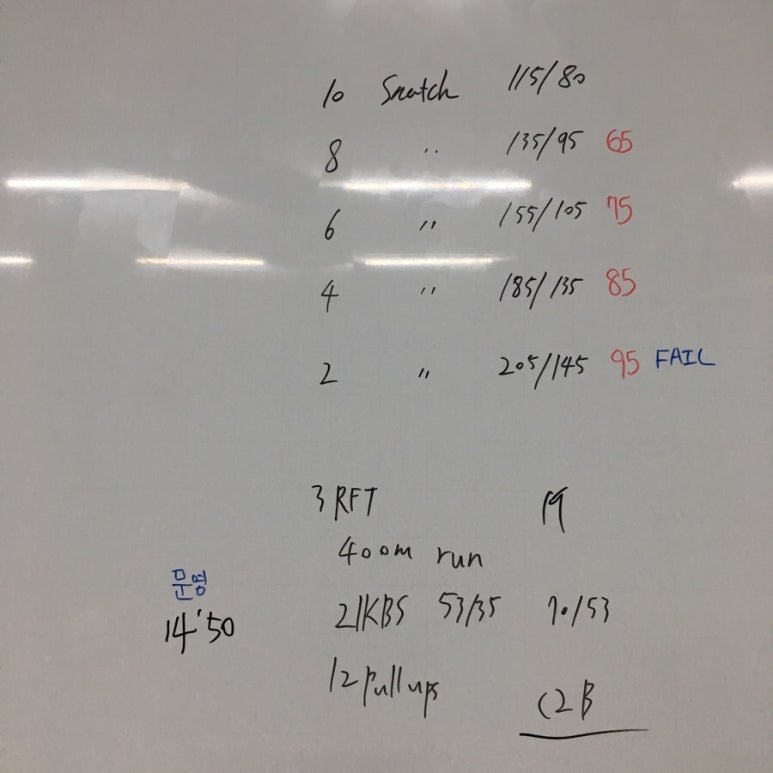 10 Snatch 115/80
8 〃 135/95 65
6 〃 155/105 75
4 〃 185/135 85
2 〃 205/145 95 FAIL
3 RFT
400m run
21KBS 53/35 70/53
12 pull ups C2B
문영
14'50